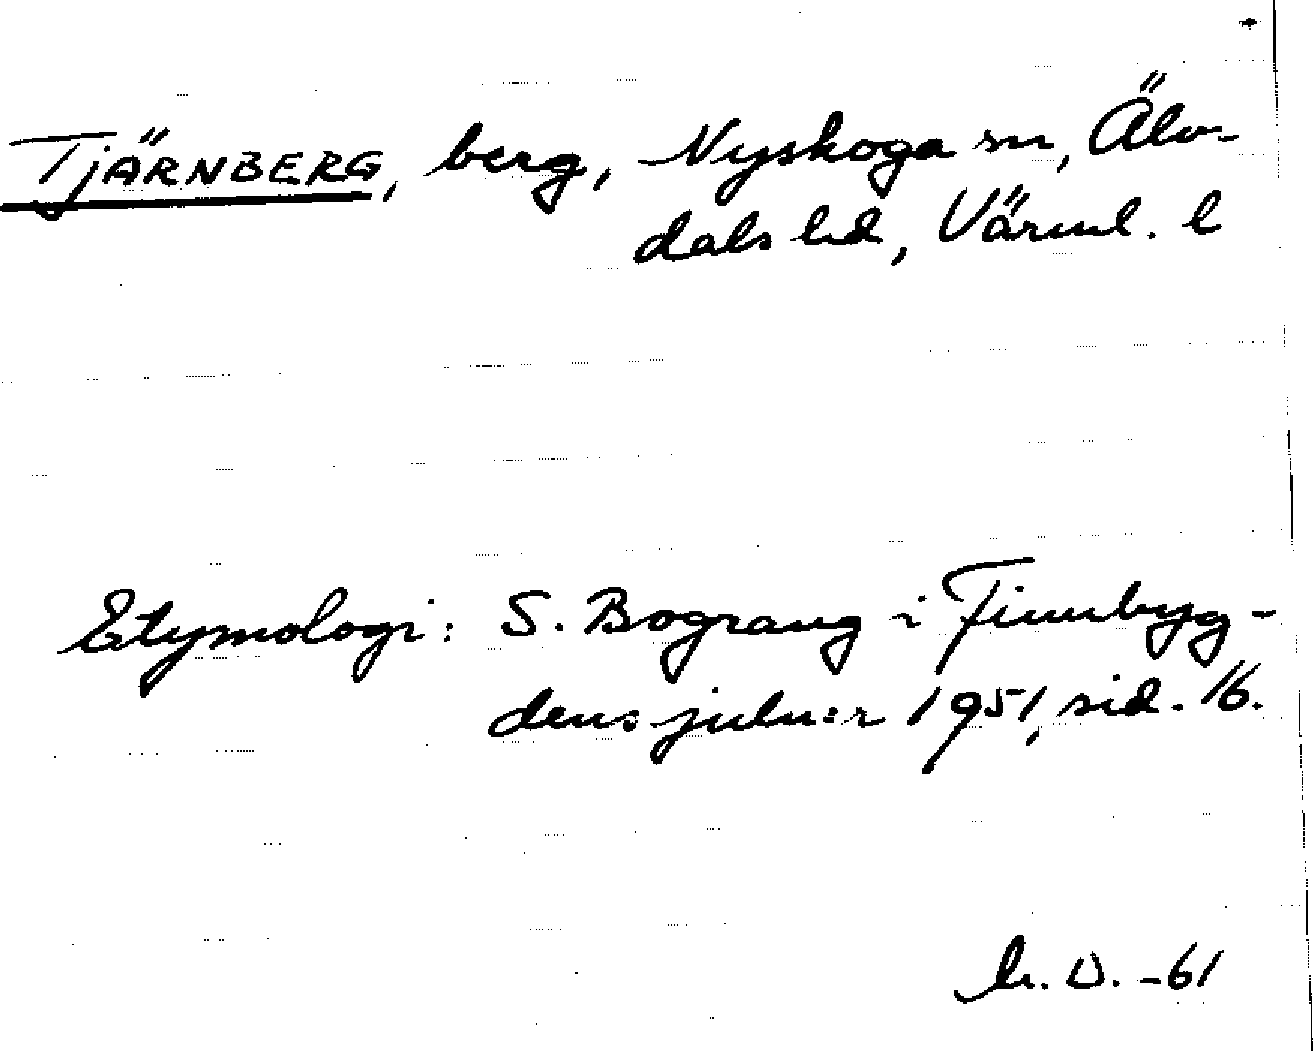 TJÄRNBERG, berg, Nyskoga sn, Älv-
dals hd, Värml. l
Etymologi: S. Bograng i Finnbyg-
dens juln:r 1951, sid. 16.
h. O. -61